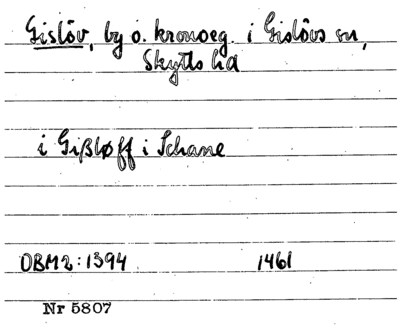 Gislöv, by o. kronoeg. i Gislövs sn,
Skytts hd
i Gißløff i Schane
OBM2:1394 1461
Nr 5807